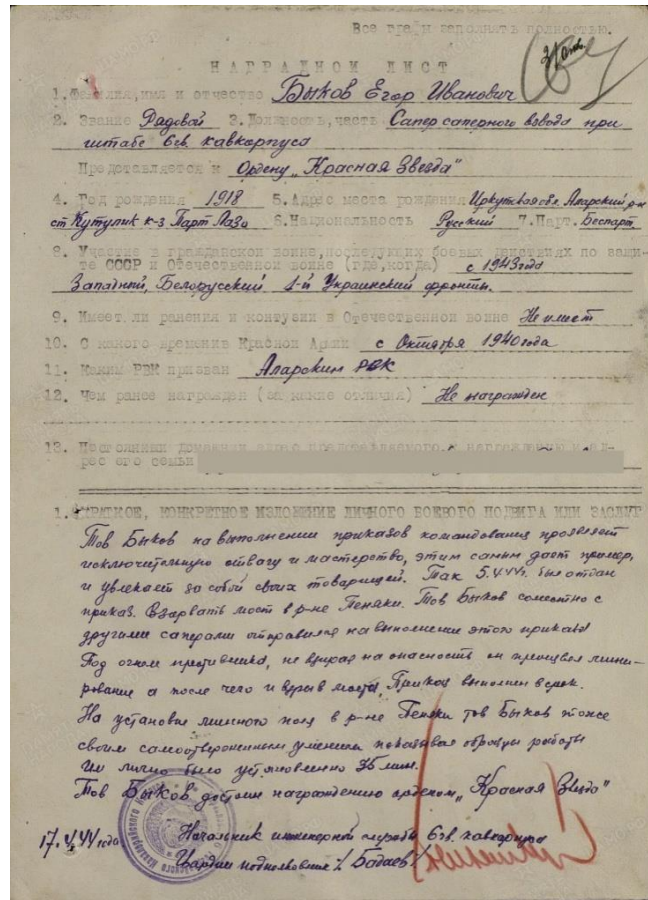 Все графы заполнять полностью.
НАГРАДНОЙ ЛИСТ
1. Фамилия, имя и отчество Быков Егор Иванович
2. Звание Рядовой 3. Должность, часть Сапер саперного взвода при
штабе 6 гв. кавкорпуса
Представляется к Ордену „Красная Звезда"
4. Год рождения 1918 5. Адрес места рождения Иркутская обл. Аларский р-н
ст Кутулик к-з Парт Лазо 6. Национальность Русский 7. Парт. Беспарт.
8. Участие в гражданской войне, последующих боевых действиях по защи-
те СССР и Отечественной войне (где, когда) с 1943 года
Западной, Белорусский, 1-й Украинский фронты.
9. Имеет ли ранения и контузии в Отечественной войне Не имеет
10. С какого времени Красной Армии с Октября 1940 года
11. Каким РВК призван Аларским РВК
12. Чем ранее награжден (за какие отличия) Не награжден
13. Постоянный домашний адрес представляемого к награждению и ад-
рес его семьи
1. КРАТКОЕ, КОНКРЕТНОЕ ИЗЛОЖЕНИЕ ЛИЧНОГО БОЕВОГО ПОДВИГА ИЛИ ЗАСЛУГ
Тов Быков на выполнении приказов командования проявляет
исключительную отвагу и мастерство, этим самым дает пример,
и увлекает за собой своих товарищей. Так 5.4.44г. был отдан
приказ. Взорвать мост в р-не Пеняки. Тов Быков совместно с
другими саперами отправился на выполнение этого приказа
Под огнем противника, не взирая на опасность он произвел мини-
рование а после чего и взрыв моста, Приказ выполнен в срок.
На установке минного поля в р-не Пеняки тов Быков тоже
своим самоотверженным умением показывал образцы работы
Им лично было установленно 75 мин.
Тов Быков достоин награждению орденом „Красная Звезда"
17.4.44 года Начальник инженерной службы 6 гв. кавкорпуса
Гвардии подполковник /Бадаев/